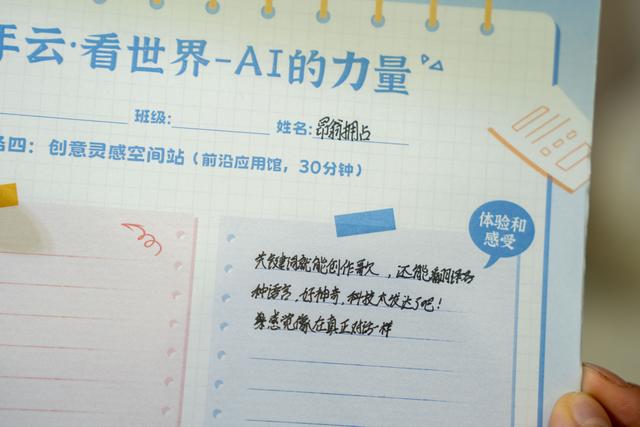 年云·看世界-AI的力量
班级: 姓名:昂翁拥占
务四：创意灵感空间站（前沿应用馆，30分钟）
体验和
感受
关键词就能创作歌，还能翻译各
种语言，好神奇，科技太发达了吧！
感觉像在真正对话一样